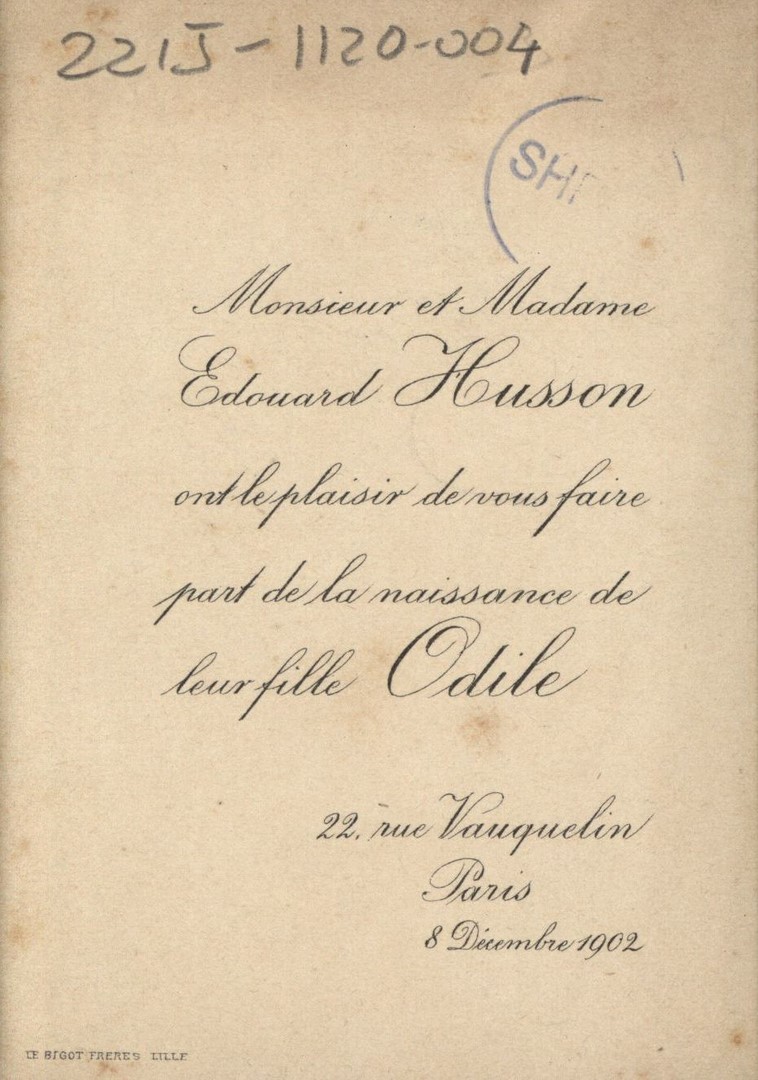 221J-1120-004
SH
Monsieur et Madame
Edouard Husson
ont le plaisir de vous faire
part de la naissance de
leur fille Odile
22, rue Vauquelin
Paris
8 Décembre 1902
LE BIGOT FRERES LILLE